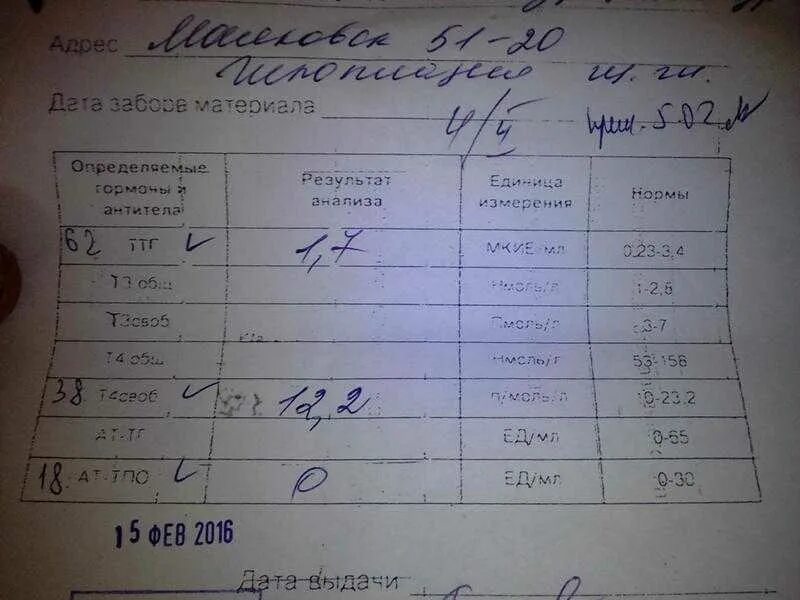 Адрес Маяковск 51-20
Гипоплазия щ. ж.
Дата забора материала 4/II
Определяемые гормоны и антитела Результат анализа Единица измерения Нормы
62 ТТГ ✓ 1,7 МКИЕ/мл 0,23-3,4
Т3 общ Нмоль/л 1-2,8
Т3своб Пмоль/л 3-7
Т4 общ Нмоль/л 53-158
38 Т4своб ✓ 12,2 п/моль/л 10-23,2
АТ-ТГ ЕД/мл 0-65
18 АТ-ТПО ✓ 0 ЕД/мл 0-30
15 ФЕВ 2016
Дата выдачи